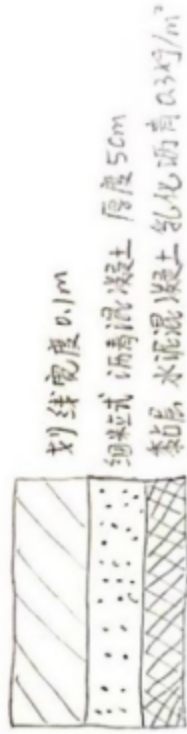 划线宽度0.1m
细粒式 沥青混凝土 厚度5cm
黏层 水泥混凝土 乳化沥青 0.3kg/m²